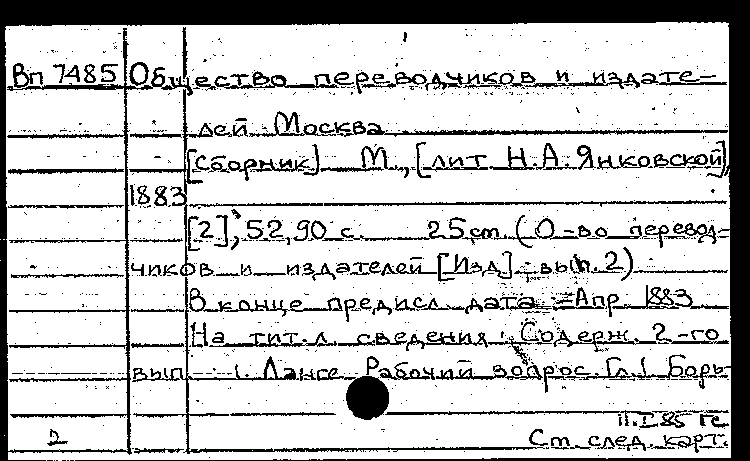 Вп 7485 Общество переводчиков и издате-
лей. Москва
[Сборник]. М., [лит. Н.А. Янковской],
1883
[2], 52, 90 с. 25 см. (О-во перевод-
чиков и издателей [Изд]. вып. 2)
В конце предисл. дата: Апр. 1883
На тит. л. сведения: Содерж. 2-го
вып. 1. Ланге. Рабочий вопрос. [гл.] Борь-
11.I.85 ГС
2 См. след. карт.